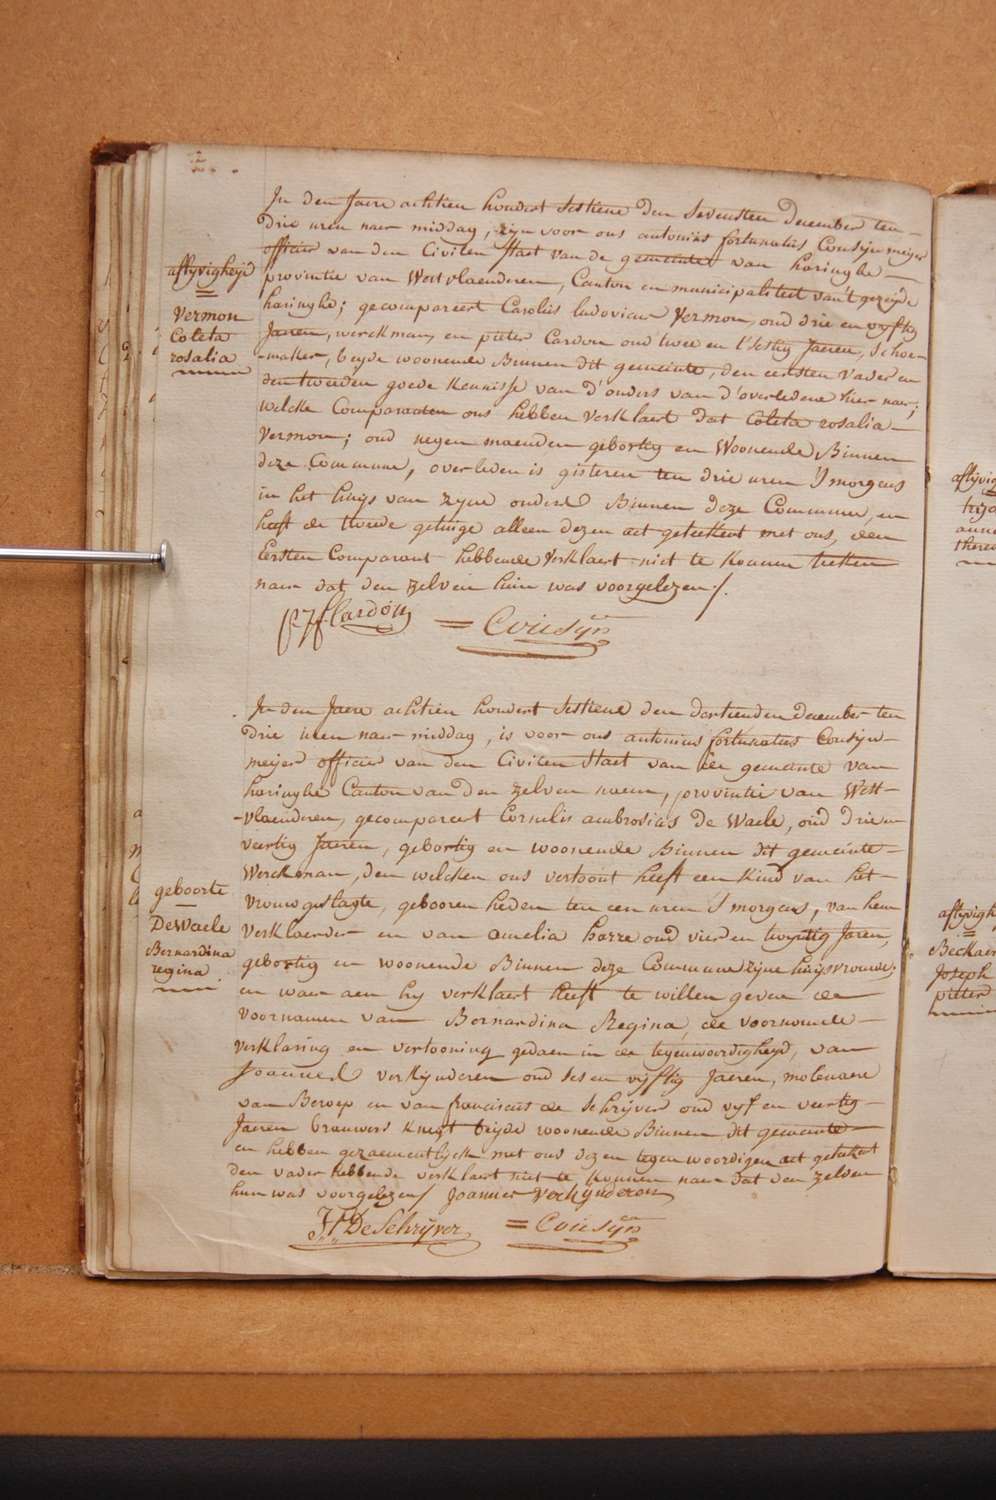 aflyvigheijd
Vermon
Coleta
rosalia
In den Jaere achtien hondert Sestiene den Sevensten december ten
drie uren naer middag, zijn voor ons antonius fortunatus Cousijn meijer
officier van den Civilen Staet van de gemeinte van haringhe
provintie van Westvlaenderen, Canton en municipaliteit van't gezeijde
haringhe; gecompareert Carolus ludovicus Vermon, oud drie en vyftig
Jaeren, werckman, en pieter Cardon oud twee en t'sestig Jaeren, Schoe-
-maker, beyde woonende Binnen dit gemeinte, den eersten vader en
den tweeden goede kennisse van d'ouders van d'overledene hier naer;
welcke Comparanten ons hebben verklaert dat Coleta rosalia
Vermon; oud negen maenden gebortig en Woonende Binnen
deze Commune, overleden is gisteren ten drie uren S'morgens
in het huijs van zyne ouders Binnen deze Commune, en
heeft de tweede getuige alleen dezen act geteekent met ons, den
Eersten Comparant hebbende verklaert niet te konnen
naer dat den zelven hun was voorgelezen/.
Cardon = Cousijn
geboorte
DeWaele
Bernardina
regina
In den Jaere achtien hondert Sestiene den dertienden december ten
drie uren naer middag, is voor ons antonius fortunatus Cousijn
meijer officier van den Civilen Staet van de gemeinte van
haringhe Canton van den zelven naem, provintie van West-
-vlaenderen, gecompareert Cornelis ambrosius De Waele, oud drie en
veertig Jaeren, gebortig en woonende Binnen dit gemeinte
Werckman, den welcken ons vertoont heeft een kind van het
vrouwgeslagte, gebooren heden ten een uren S'morgens, van hem
verklaerder en van amelia harre oud vier en twyntig Jaren,
gebortig en woonende Binnen deze Commune zyne huijsvrouwe;
en waer aen hy verklaert heeft te willen geven de
voornamen van Bernardina Regina, de voornoemde
verklaring en vertooning gedaen in de tegenwoordigheyd, van
Joannes verkijnderen oud ses en vyftig Jaeren, molenaere
van Beroep en van franciscus de Schrijver oud vyf en veertig
Jaeren brouwers knegt beijde woonende Binnen dit gemeinte
en hebben gezaementlyck met ons dezen tegenwoordigen act geteekent
den vader hebbende verklaert niet te konnen naer dat den zelven
hun was voorgelezen/ Joannes Verkijnderen
De Schrijver = Cousijn
trij
anna
aflyvigh
Beckaer
Joseph
pieter